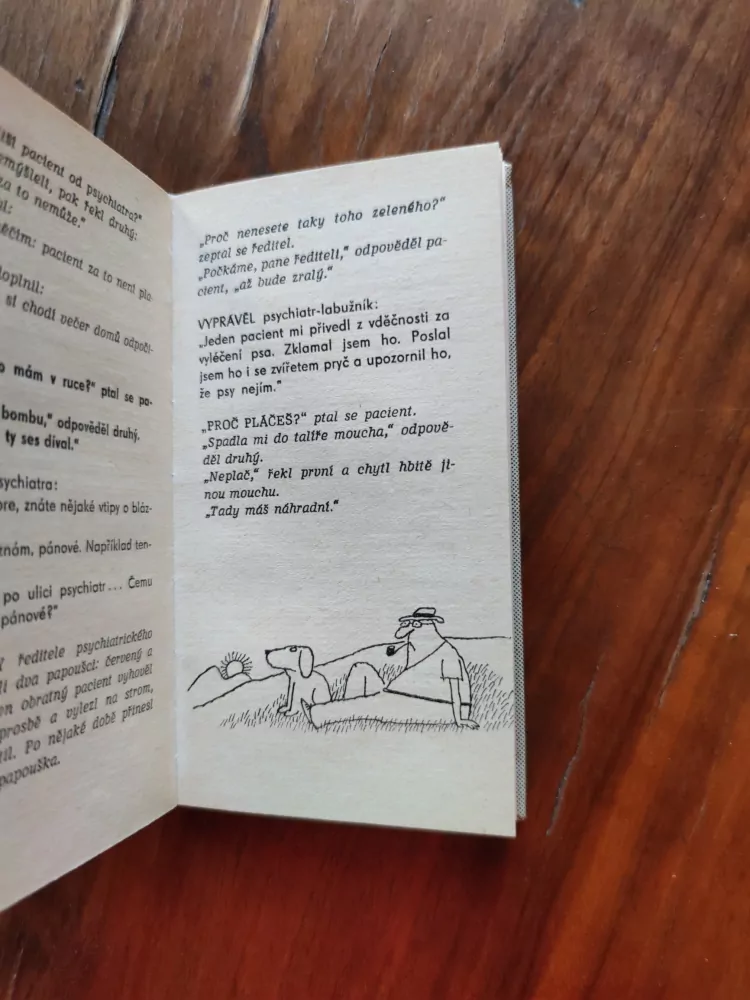 pacient od psychiatra?"
pak řekl druhý:
za to nemůže."
pacient za to není
doplnil:
si chodí večer domů
mám v ruce?" ptal se pa-
bombu," odpověděl druhý.
ty ses díval."
znáte nějaké vtipy o bláz-
pánové. Například ten-
po ulici psychiatr... Čemu
pánové?"
ředitele psychiatrického
dva papoušci: červený a
obratný pacient vyhověl
prosbě a vylezl na strom,
Po nějaké době přinesl
papouška.
„Proč nenesete taky toho zeleného?"
zeptal se ředitel.
„Počkáme, pane řediteli," odpověděl pa-
cient, „až bude zralý."
VYPRÁVĚL psychiatr-labužník:
„Jeden pacient mi přivedl z vděčnosti za
vyléčení psa. Zklamal jsem ho. Poslal
jsem ho i se zvířetem pryč a upozornil ho,
že psy nejím."
„PROČ PLÁČEŠ?" ptal se pacient.
„Spadla mi do talíře moucha," odpově-
děl druhý.
„Neplač," řekl první a chytl hbitě ji-
nou mouchu.
„Tady máš náhradní."